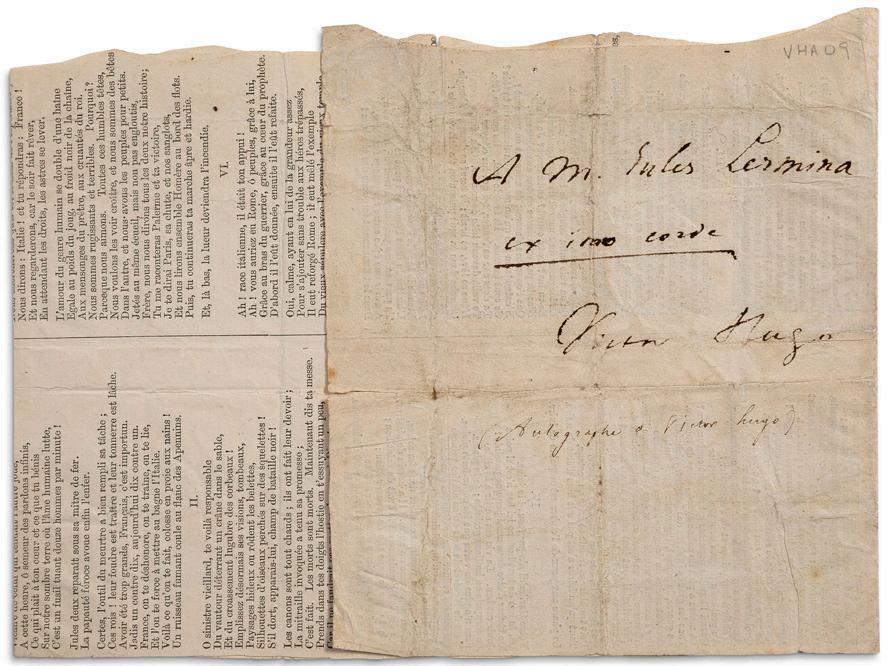 A cette heure, ô semeur des pardons infinis,
Ce qui plaît à ton cœur et ce que tu bénis
Sur notre sombre terre où l'âme humaine lutte,
C'est un fusil tuant douze hommes par minute !
Jules deux reparaît sous sa mitre de fer.
La papauté féroce avoue enfin l'enfer.
Certes, l'outil du meurtre a bien rempli sa tâche ;
Ces rois ! leur foudre est traître et leur tonnerre est lâche.
Avoir été trop grands, Français, c'est importun.
Jadis un contre dix, aujourd'hui dix contre un.
France, on te déshonore, on te traîne, on te lie,
Et l'on te force à mettre au bagne l'Italie.
Voilà ce qu'on te fait, colosse en proie aux nains !
Un ruisseau fumant coule au flanc des Apennins.
II.
O sinistre vieillard, te voilà responsable
Du vautour déterrant un crâne dans le sable,
Et du croassement lugubre des corbeaux !
Emplissez désormais ses visions, tombeaux,
Paysages hideux où rôdent les belettes,
Silhouettes d'oiseaux perchés sur des squelettes !
S'il dort, apparais-lui, champ de bataille noir !
Les canons sont tout chauds ; ils ont fait leur devoir ;
La mitraille invoquée a tenu sa promesse ;
C'est fait. Les morts sont morts. Maintenant dis ta messe.
Prends dans tes doigts l'hostie en t'essuyant un peu,
Nous dirons : Italie ! et tu répondras : France !
Et nous regarderons, car le soir fait rêver,
En attendant les droits, les astres se lever.
L'amour du genre humain se double d'une haine
Egale au poids du joug, au froid noir de la chaîne,
Aux mensonges du prêtre, aux cruautés du roi.
Nous sommes rugissants et terribles. Pourquoi?
Parceque nous aimons. Toutes ces humbles têtes,
Nous voulons les voir croître, et nous sommes des bêtes
Dans l'antre, et nous avons les peuples pour petits.
Jetés au même écueil, mais non pas engloutis,
Frère, nous nous dirons tous les deux notre histoire;
Tu me raconteras Palerme et ta victoire,
Je te dirai Paris, sa chute, et nos sanglots,
Et nous lirons ensemble Homère au bord des flots.
Puis, tu continueras ta marche âpre et hardie.
Et, là bas, la lueur deviendra l'incendie.
VI.
Ah ! race italienne, il était ton appui!
Ah ! vous auriez eu Rome, ô peuples, grâce à lui,
Grâce au bras du guerrier, grâce au cœur du prophète.
D'abord il l'eût donnée, ensuite il l'eût refaite.
Oui, calme, ayant en lui de la grandeur assez
Pour s'ajouter sans trouble aux héros trépassés,
Il eut reforgé Rome ; il eut mêlé l'exemple
VHA09
A M. Jules Lermina
ex imo corde
Victor Hugo
(Autographe de Victor hugo)